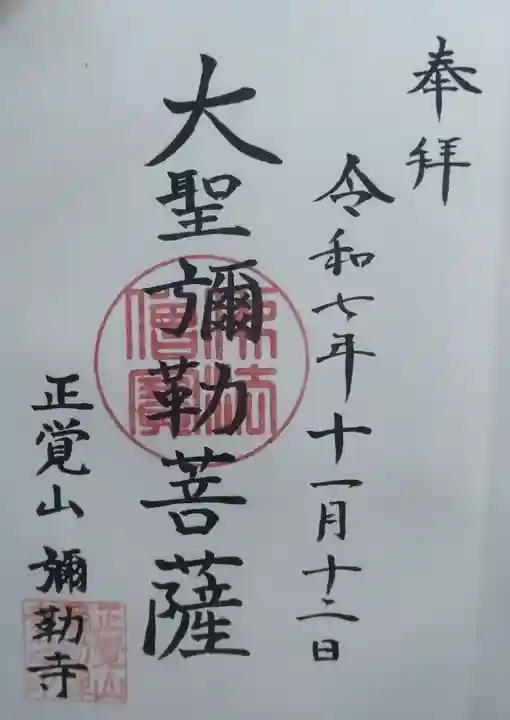 奉拝
令和七年十一月十二日
大聖彌勒菩薩
正覚山 彌勒寺
佛法僧寶